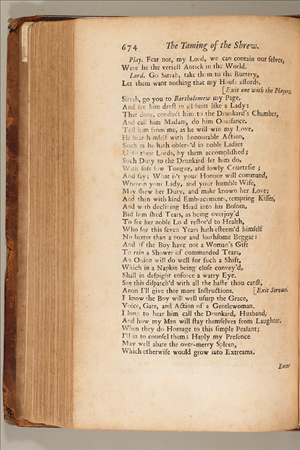 674 The Taming of the Shrew.
Play. Fear not, my Lord, we can contain our selves,
Were he the veriest Antick in the World.
Lord. Go Sirrah, take them to the Buttery,
Let them want nothing that my House affords.
[Exit one with the Players.
Sirrah, go you to Bartholomew my Page,
And see him drest in all suits like a Lady:
That done, conduct him to the Drunkard's Chamber,
And call him Madam, do him Obeisance.
Tell him from me, as he will win my Love,
He bear himself with honourable Action,
Such as he hath observ'd in noble Ladies
Unto their Lords, by them accomplished;
Such Duty to the Drunkard let him do,
With soft low Tongue, and lowly Courtesie;
And say; What is't your Honour will command,
Wherein your Lady, and your humble Wife,
May shew her Duty, and make known her Love;
And then with kind Embracement, tempting Kisses,
And with declining Head into his Bosom,
Bid him shed Tears, as being overjoy'd
To see her noble Lord restor'd to Health,
Who for this seven Years hath esteem'd himself
No better than a poor and loathsome Beggar:
And if the Boy have not a Woman's Gift
To rain a Shower of commanded Tears,
An Onion will do well for such a Shift,
Which in a Napkin being close convey'd,
Shall in despight enforce a watry Eye.
See this dispatch'd with all the haste thou canst,
Anon I'll give thee more Instructions. [Exit Servant.
I know the Boy will well usurp the Grace,
Voice, Gate, and Action of a Gentlewoman.
I long to hear him call the Drunkard, Husband,
And how my Men will stay themselves from Laughter,
When they do Homage to this simple Peasant;
I'll in to counsel them: Haply my Presence
May well abate the over-merry Spleen,
Which otherwise would grow into Extreams.
Enter